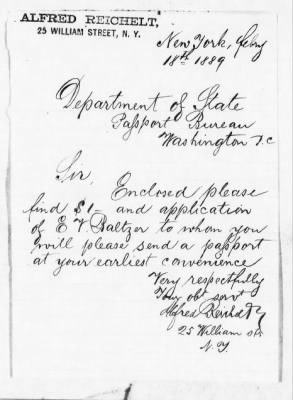 ALFRED REICHELT,
25 WILLIAM STREET, N. Y.
New York, Febry
18th 1889
Department of State
Passport Bureau
Washington D.C
Sir,
Enclosed please
find $1- and application
of E. V. Baltzer to whom you
will please send a passport
at your earliest convenience
Very respectfully
Your obt servt
Alfred Reichelt
25 William St.
N. Y.